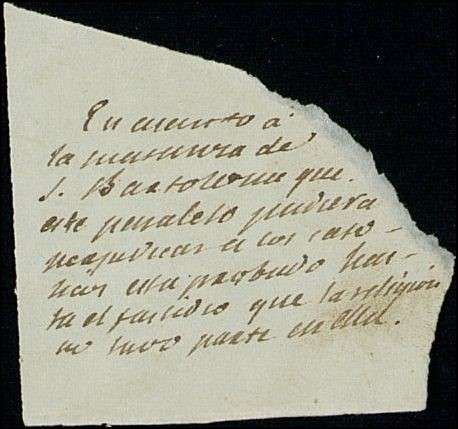 En cuanto à
la matanza de
S. Bartolome que
este penseis pudiera
perjudicar a los
esta probado has-
ta el que la religion
no tuvo parte en ella.